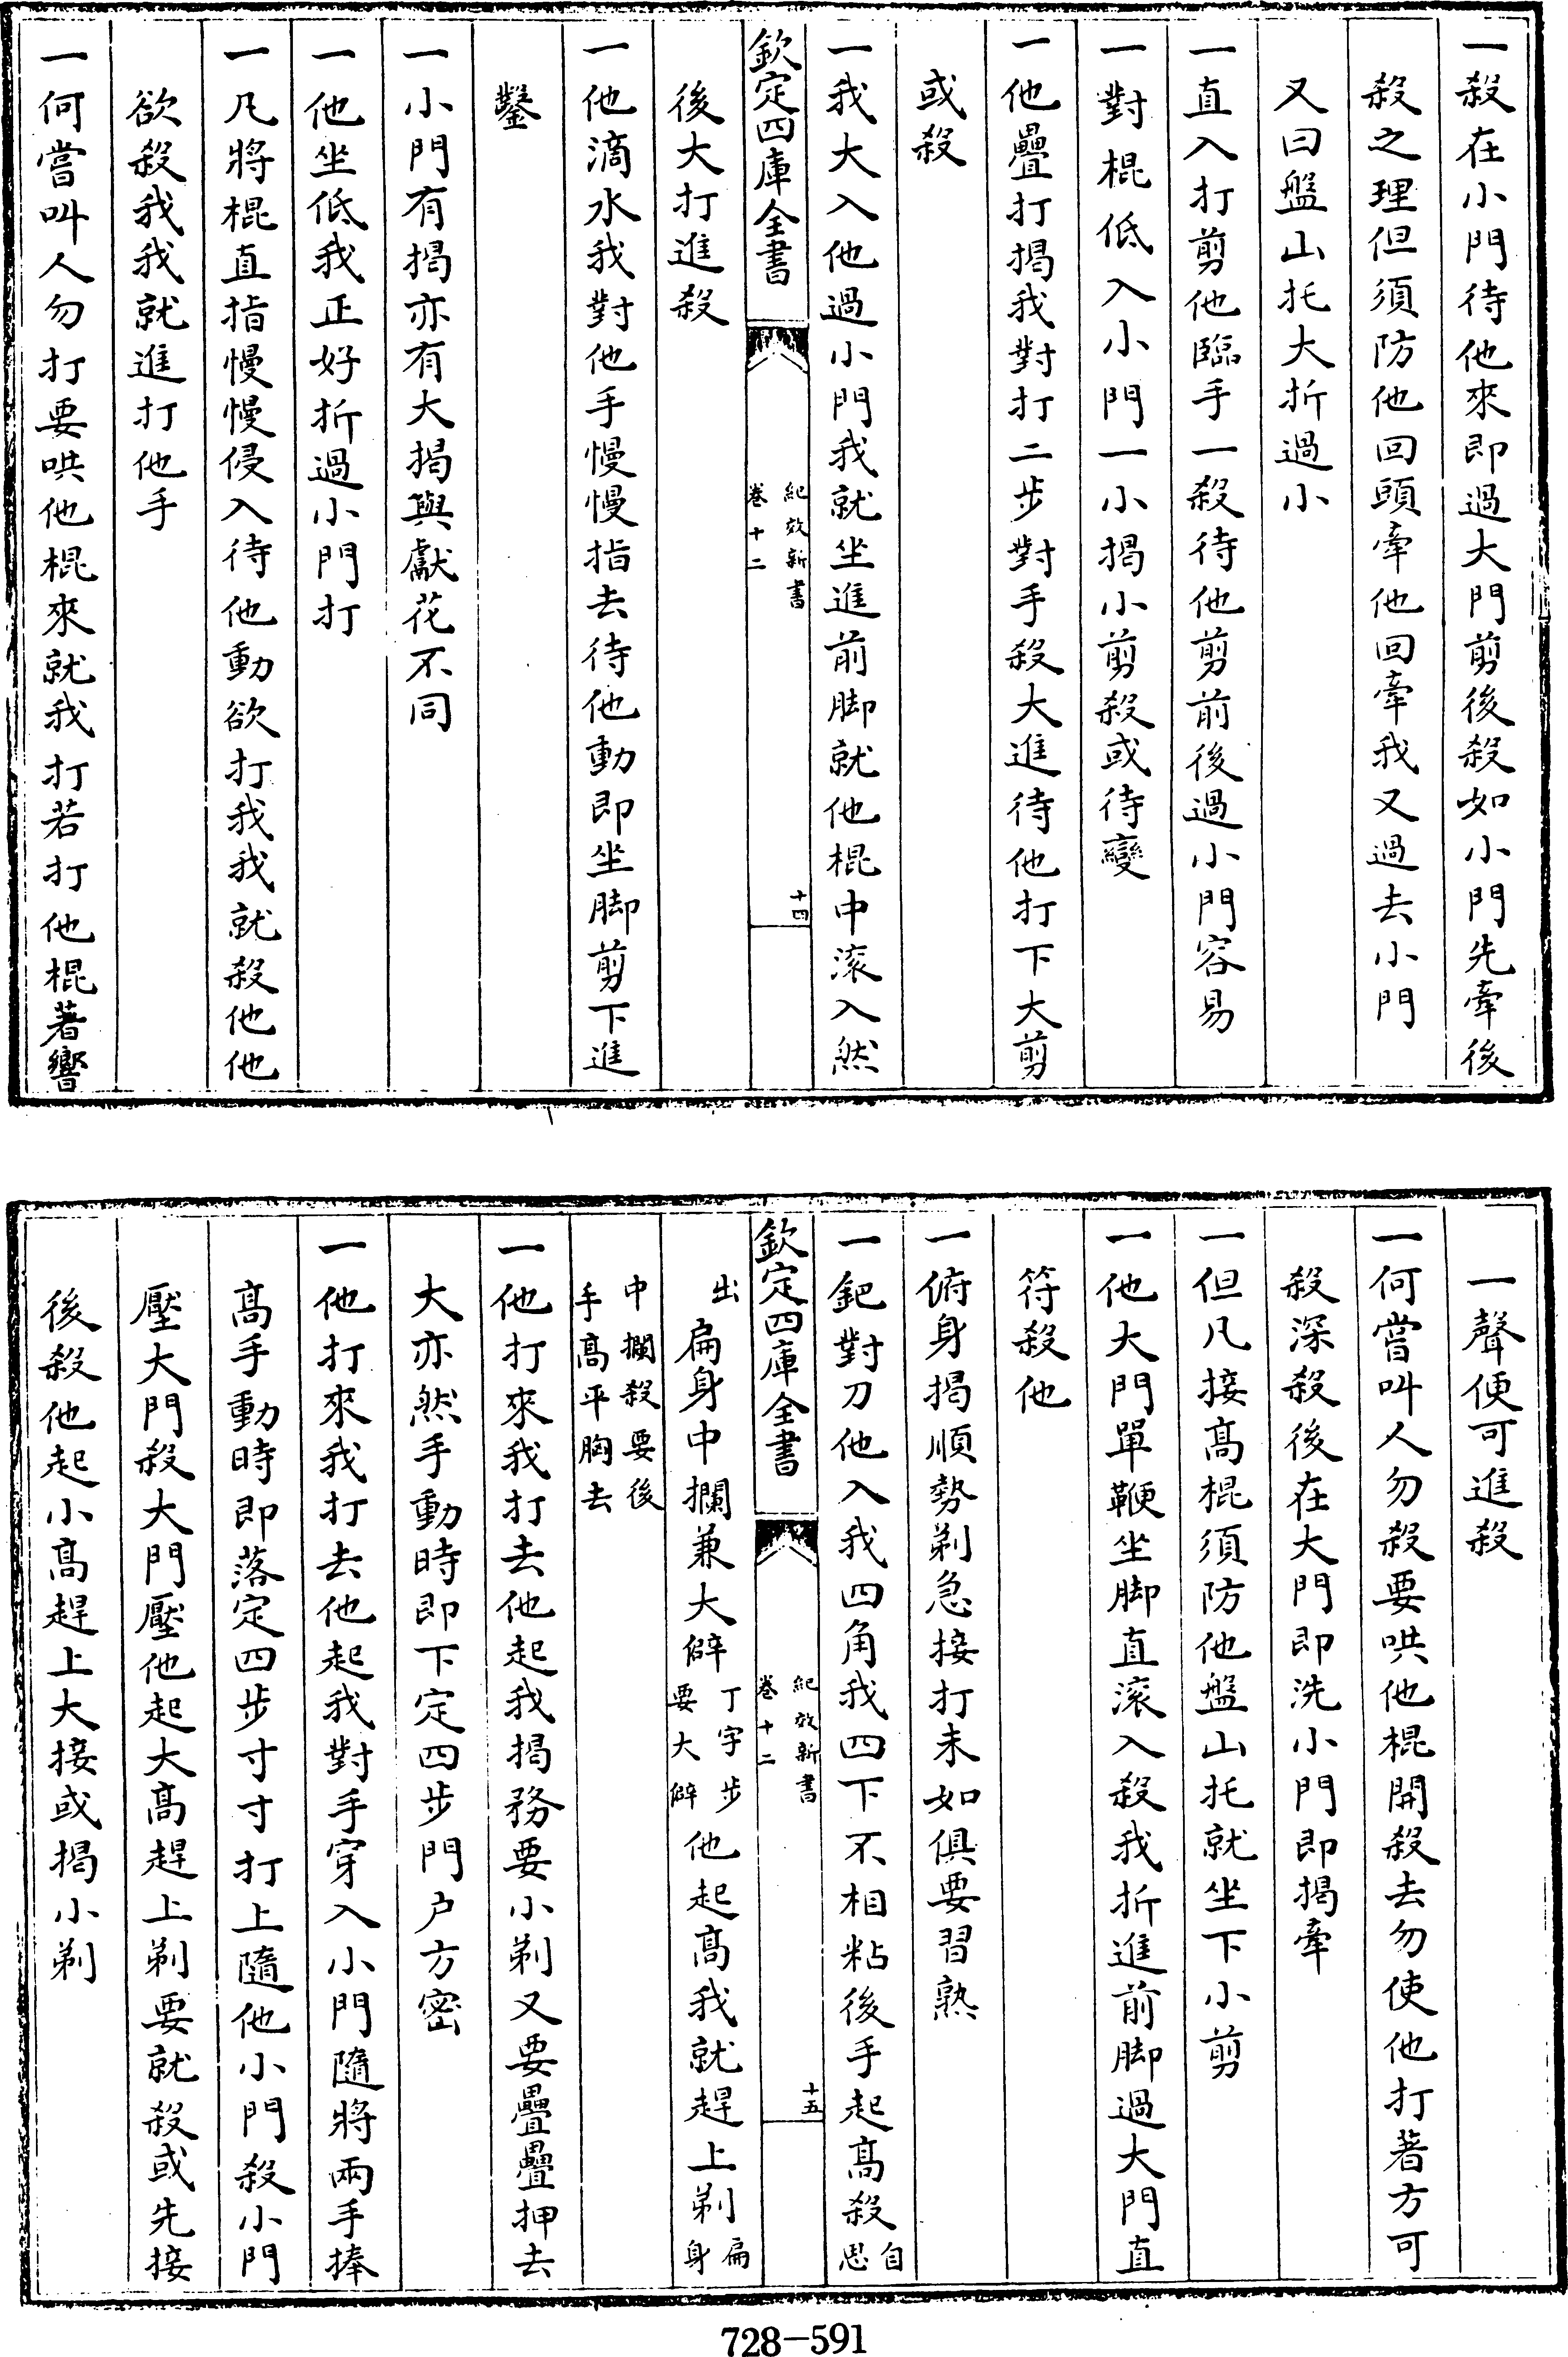 一殺在小門待他來即過大門剪後殺如小門先牽後
殺之理但須防他回頭牽他回牽我又過去小門
又曰盤山托大折過小
一直入打剪他臨手一殺待他剪前後過小門容易
一對棍低入小門一小揭小剪殺或待變
一他疊打揭我對打二步對手殺大進待他打下大剪
或殺
一我大入他過小門我就坐進前脚就他棍中滚入然
欽定四庫全書
紀效新書
卷十二
十四
後大打進殺
一他滴水我對他手慢慢指去待他動即坐脚剪下進
鑿
一小門有揭亦有大揭與獻花不同
一他坐低我正好折過小門打
一凡將棍直指慢慢侵入待他動欲打我我就殺他他
欲殺我我就進打他手
一何嘗叫人勿打要哄他棍來就我打若打他棍著響
一聲便可進殺
一何嘗叫人勿殺要哄他棍開殺去勿使他打著方可
殺深殺後在大門即洗小門即揭牽
一但凡接髙棍須防他盤山托就坐下小剪
一他大門單鞭坐脚直滚入殺我折進前脚過大門直
符殺他
一俯身揭順勢剃急接打未如俱要習熟
一鈀對刀他入我四角我四下不相粘後手起髙殺自
思
欽定四庫全書
紀效新書
卷十二
十五
出扁身中攔兼大僻丁字步
要大僻他起髙我就趕上剃扁
身
中攔殺要後
手髙平胸去
一他打來我打去他起我揭務要小剃又要疊疊押去
大亦然手動時即下定四步門户方密
一他打來我打去他起我對手穿入小門隨將兩手捧
髙手動時即落定四步寸寸打上隨他小門殺小門
壓大門殺大門壓他起大髙趕上剃要就殺或先接
後殺他起小髙趕上大接或揭小剃
728-591